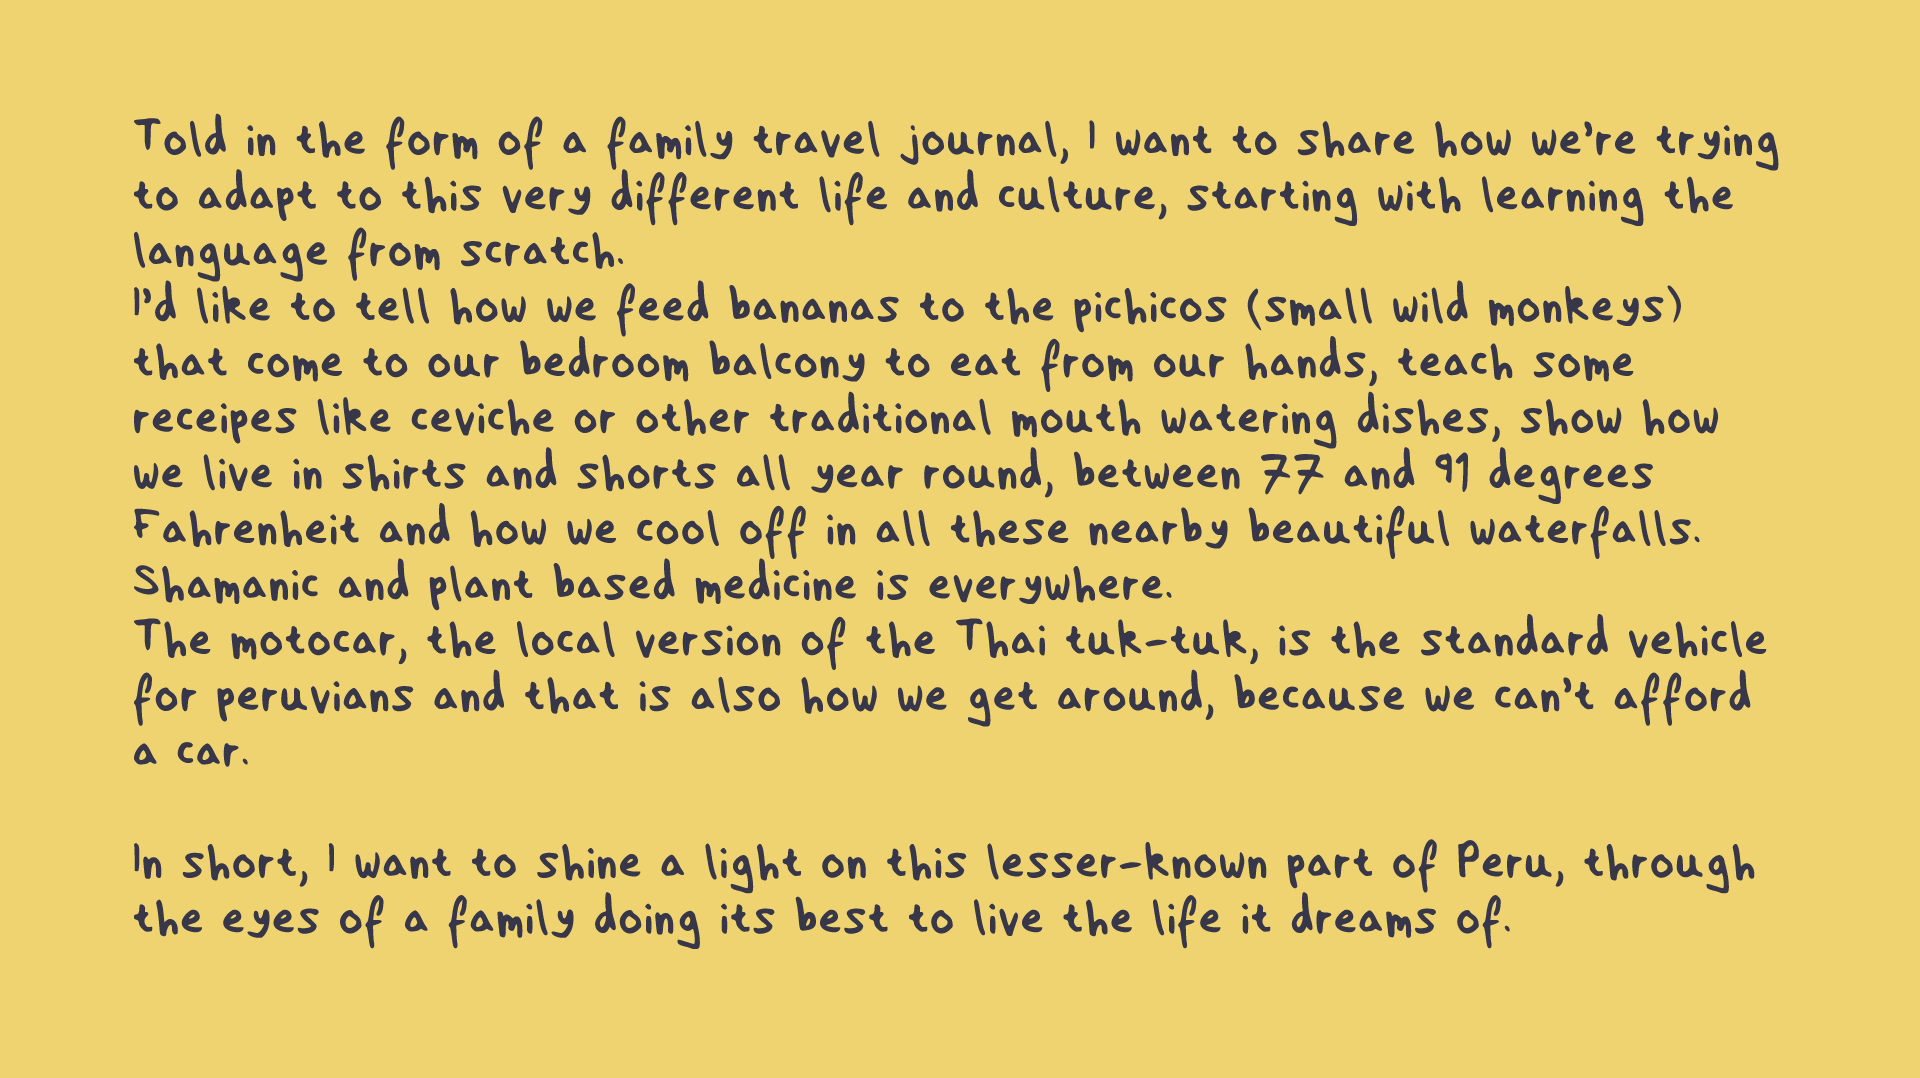 Told in the form of a family travel journal, I want to share how we're trying
to adapt to this very different life and culture, starting with learning the
language from scratch.
I'd like to tell how we feed bananas to the pichicos (small wild monkeys)
that come to our bedroom balcony to eat from our hands, teach some
receipes like ceviche or other traditional mouth watering dishes, show how
we live in shirts and shorts all year round, between 77 and 91 degrees
Fahrenheit and how we cool off in all these nearby beautiful waterfalls.
Shamanic and plant based medicine is everywhere.
The motocar, the local version of the Thai tuk-tuk, is the standard vehicle
for peruvians and that is also how we get around, because we can't afford
a car.
In short, I want to shine a light on this lesser-known part of Peru, through
the eyes of a family doing its best to live the life it dreams of.